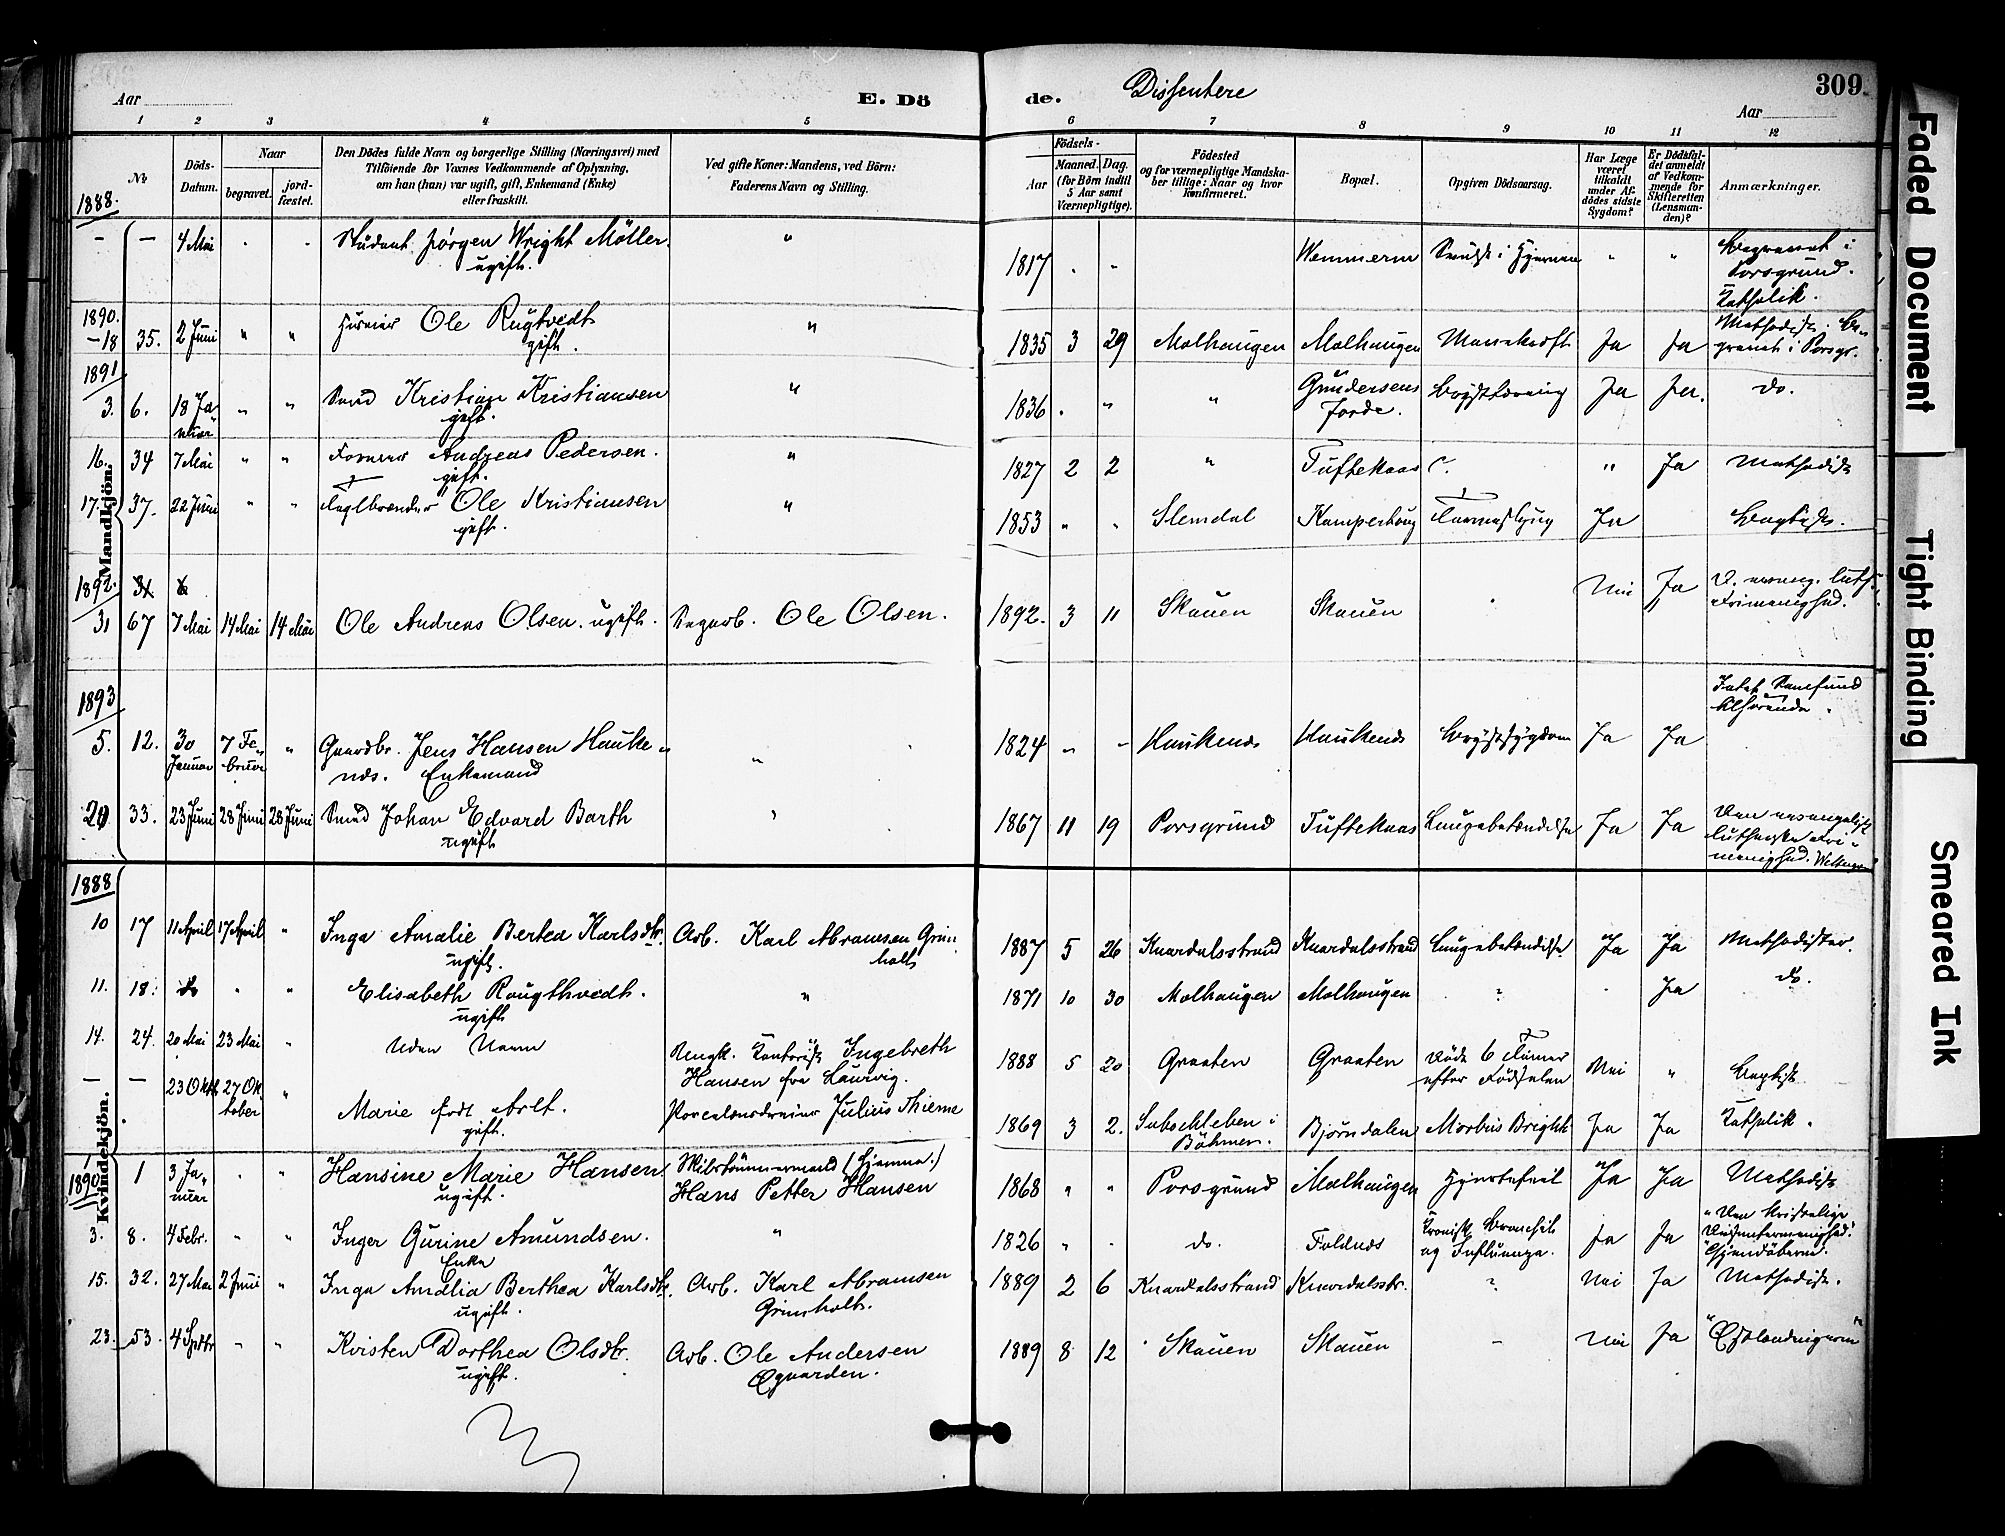 309.
Aar
E. Dö
de.
Dissentere
Aar
1 2 3 4 5 6 7 8 9 10 11 12
No
Döds-
Datum.
Naar
begravet.
jord-
fæstet.
Den Dödes fulde Navn og borgerlige Stilling (Næringsvei) med
Tilföiende for Voxnes Vedkommende af Oplysning,
om han (hun) var ugift, gift, Enkemand (Enke)
eller fraskilt.
Ved gifte Koner: Mandens, ved Börn:
Faderens Navn og Stilling.
Födsels-
Aar
Maaned.
Dag.
(for Börn indtil
5 Aar samt
Værnepligtige).
Födested
og for værnepligtige Mandska-
ber tillige: Naar og hvor
konfirmeret.
Bopæl.
Opgiven Dödsaarsag.
Har Læge
været
tilkaldt
under Af-
dödes sidste
Sygdom?
Er Dödsfal-
det anmeldt
af Vedkom-
mende for
Skifteretten
(Lensman-
den)?
Anmærkninger.
Mandkjön.
1888.
– – 4 Mai Student Jørgen Wright Möller " 1817 Begravet i
ugift. Porsgrund.
Katholik.
1890.
–18 35. 2 Juni " " Ole Rugtvedt " 1835 3 29 Molhaugen Molhaugen Ja Ja Methodist. Be-
gift. gravet i Porsgr.
1891
3. 6. 18 Ja- " " Smed Kristian Kristiansen " 1836 " " Gundersens Ja Ja. do.
nuar gift. Jorde.
16. 34 7 Mai " " Andreas Pedersen. " 1827 2 2 " Tuftekaas ? " Ja Methodist
gift.
17. 37. 22 Juni " " Teglbrænder Ole Kristiansen " 1853 " " Slemdal Kamperhoug Ja Baptist.
gift.
1892.
31 67 7 Mai 14 Mai 14 Mai Ole Andreas Olsen. ugift. Dagarb. Ole Olsen. 1892. 3 11 Skauen Skauen Nei Ja Frimenighed.
1893
5. 12. 30 7 Fe- " Gaardbr. Jens Hansen Hauke- " 1824 " " Haukenæs Haukenæs Brystsygdom Ja Ja
Januar bruar næs. Enkemand
20 33. 23 Juni 28 Juni 28 Juni Smed Johan Edvard Barth 1867 11 19 Porsgrund Tuftekaas Lungebetændelse Ja Ja Den evangelisk
ugift lutherske Fri-
menighed.
Kvindekjön.
1888
10 17 11 April 17 April " Inga Amalie Berthea Karlsdtr. Arb. Karl Abramsen Grim- 1887 5 26 Knardalsstrand Knardalsstrand Lungebetændelse Ja Ja Methodister.
ugift. holt
11. 18. do " " Elisabeth Rougthvedt. " 1871 10 30 Molhaugen Molhaugen ? Ja do.
ugift
14. 24. 20 Mai 23 Mai " Uden Navn Kontorist Ingebreth 1888 5 20 Graaten Graaten Döde 6 Timer Nei " Baptist
Hansen fra Laurvig. efter Födselen
– – 23 Okt. 27 Ok- " Marie födt Arlt. Porcelænsdreier Julius Thieme 1869 3 2. i Bjørndalen Morbus Brightii Ja Ja Katholik.
tober gift. Böhmen.
1890
1 3 Ja- " " Hansine Marie Hansen. (Hjemme.) 1868 " " Porsgrund Molhaugen Hjertefeil Ja Ja Methodist
nuar ugift. Hans Petter Hansen
3. 8. 4 Febr. " " Inger Gurine Amundsen. " 1826 " - do. Foldnæs Kronisk Bronchit Ja Ja "Den kristelige
Enke og Influenza. Dissentermenighed.
Gjendöberne.
15. 32. 27 Mai 2 Juni " Inga Amalia Berthea Karlsdtr. Arb. Karl Abramsen 1889 2 6 Knardalsstrand Knardalsstr. ? Nei Ja Methodist.
ugift. Grimholt.
23. 53. 4 Septbr " " Kristen Dorthea Olsdtr. Arb. Ole Andersen 1889 8 12 Skauen Skauen – Nei Ja
ugift.
Faded Document
Tight Binding
Smeared Ink